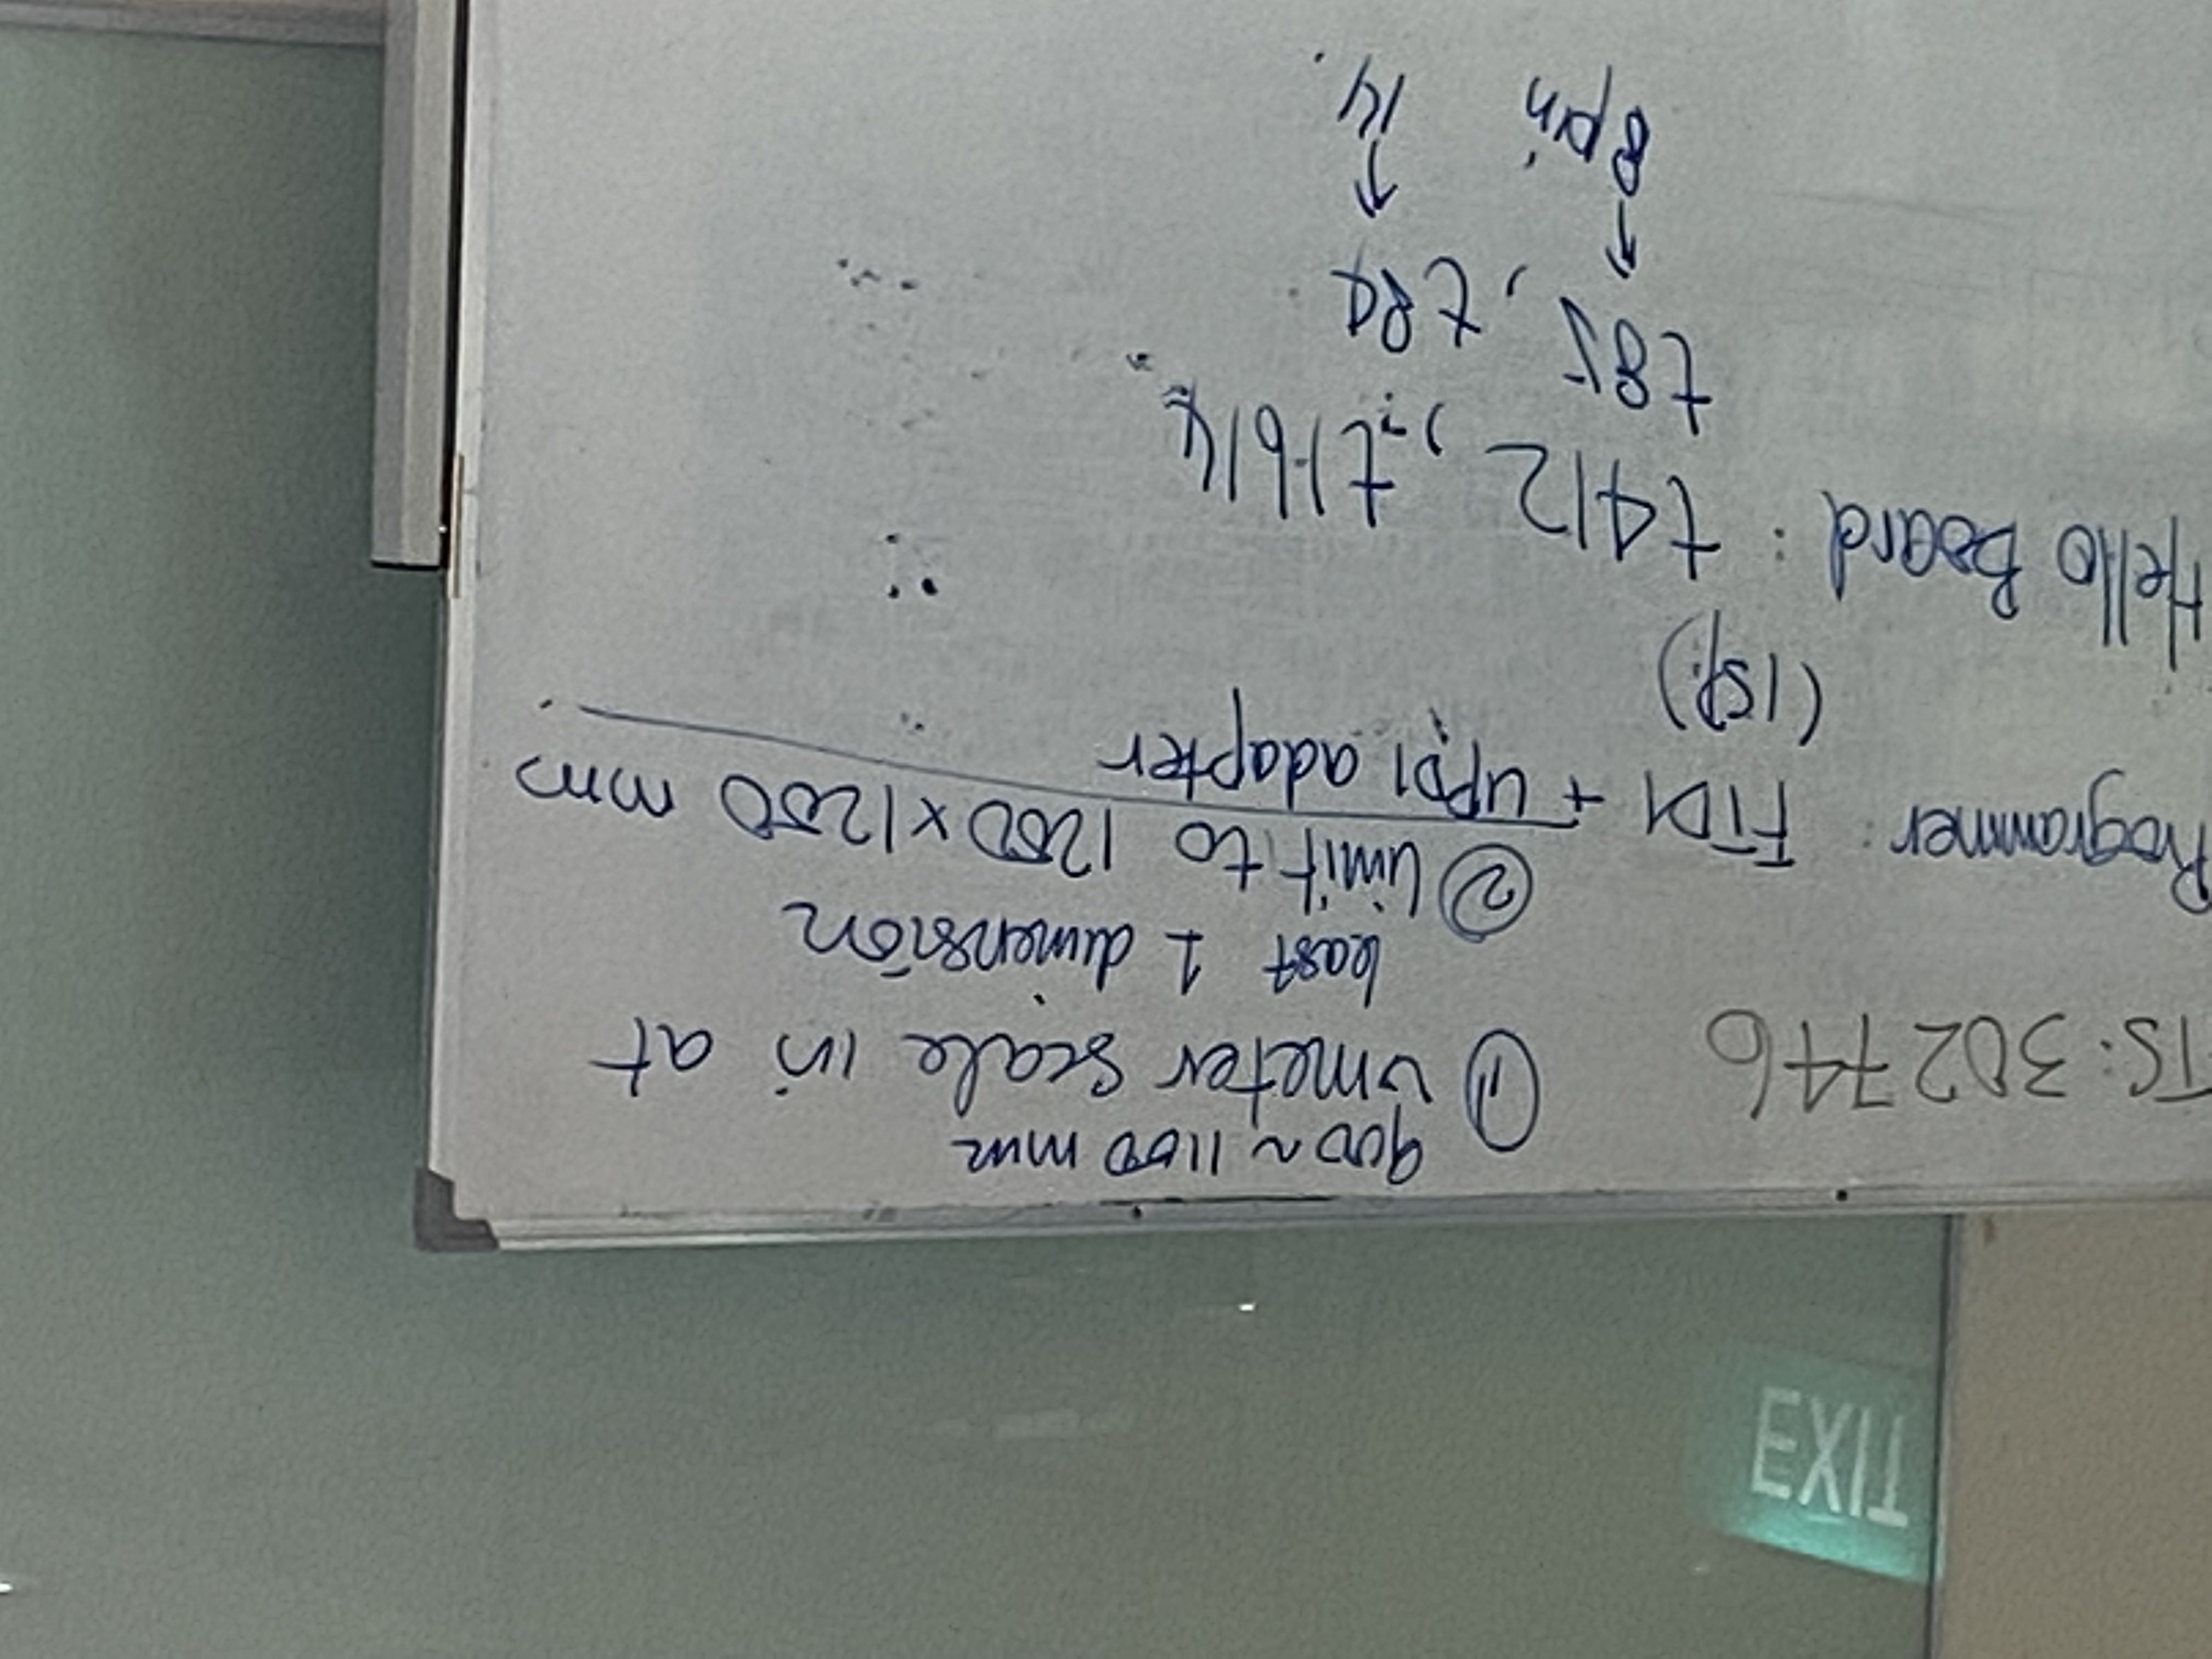 EXIT
TS: 302746
900 ~ 1100 mm
① meter scale in at
least 1 dimension
② limit to 1200 x 1200 mm
Programmer: FTDI + UPDI adapter
(ISP)
Hello Board: t412, t1614
t85, t84
↑ ↑
8pin 14.